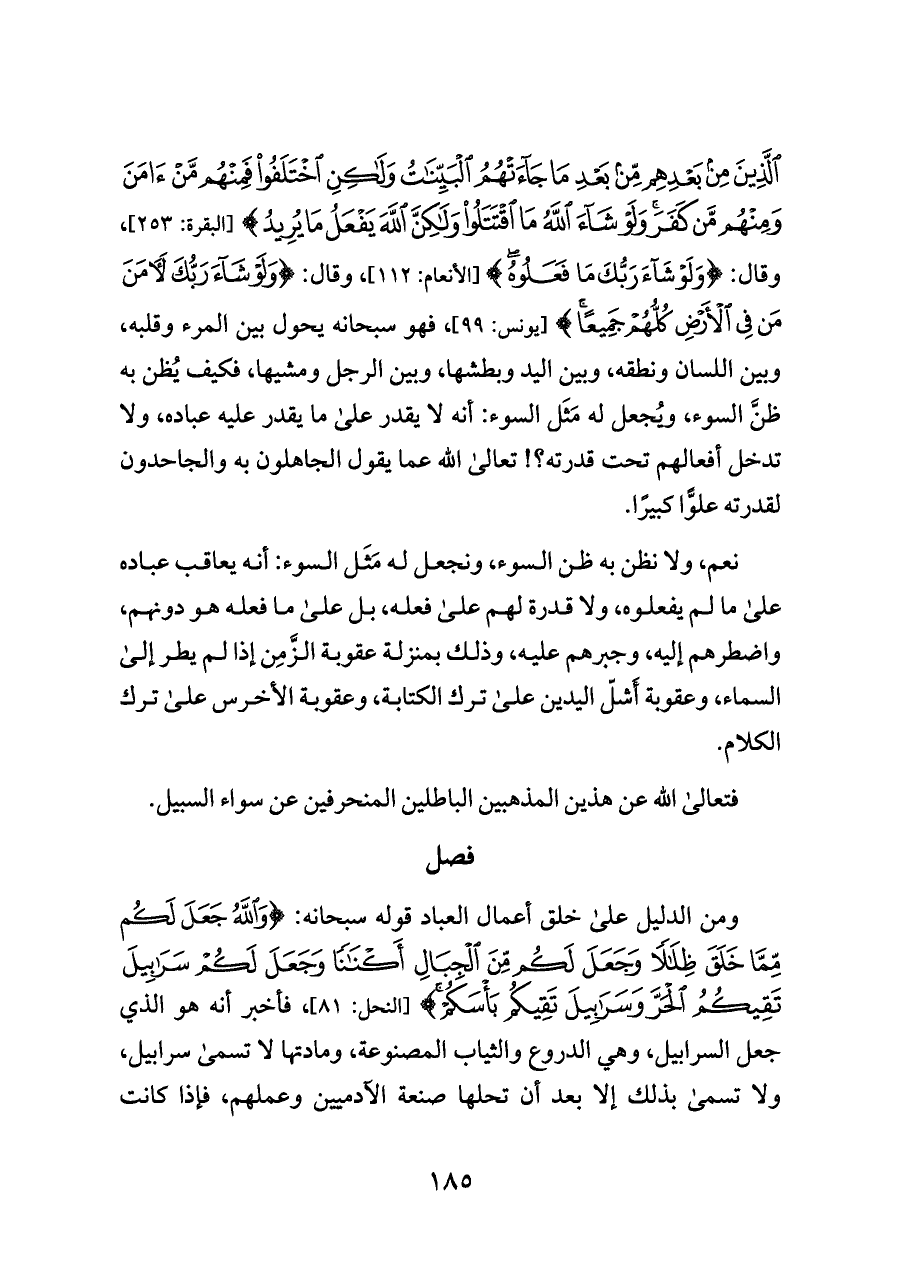 ٱلَّذِينَ مِنۢ بَعْدِهِم مِّنۢ بَعْدِ مَا جَآءَتْهُمُ ٱلْبَيِّنَٰتُ وَلَٰكِنِ ٱخْتَلَفُوا۟ فَمِنْهُم مَّنْ ءَامَنَ
وَمِنْهُم مَّن كَفَرَ ۚ وَلَوْ شَآءَ ٱللَّهُ مَا ٱقْتَتَلُوا۟ وَلَٰكِنَّ ٱللَّهَ يَفْعَلُ مَا يُرِيدُ﴾ [البقرة: ٢٥٣]،
وقال: ﴿وَلَوْ شَآءَ رَبُّكَ مَا فَعَلُوهُ ۖ﴾ [الأنعام: ١١٢]، وقال: ﴿وَلَوْ شَآءَ رَبُّكَ لَءَامَنَ
مَن فِى ٱلْأَرْضِ كُلُّهُمْ جَمِيعًا ۚ﴾ [يونس: ٩٩]، فهو سبحانه يحول بين المرء وقلبه،
وبين اللسان ونطقه، وبين اليد وبطشها، وبين الرجل ومشيها، فكيف يُظن به
ظنَّ السوء، ويُجعل له مَثَل السوء: أنه لا يقدر علىٰ ما يقدر عليه عباده، ولا
تدخل أفعالهم تحت قدرته؟! تعالىٰ الله عما يقول الجاهلون به والجاحدون
لقدرته علوًّا كبيرًا.
نعم، ولا نظن به ظن السوء، ونجعل له مَثَل السوء: أنه يعاقب عباده
علىٰ ما لم يفعلوه، ولا قدرة لهم علىٰ فعله، بل علىٰ ما فعله هو دونهم،
واضطرهم إليه، وجبرهم عليه، وذلك بمنزلة عقوبة الزَّمِن إذا لم يطر إلىٰ
السماء، وعقوبة أَشلّ اليدين علىٰ ترك الكتابة، وعقوبة الأخرس علىٰ ترك
الكلام.
فتعالىٰ الله عن هذين المذهبين الباطلين المنحرفين عن سواء السبيل.
فصل
ومن الدليل علىٰ خلق أعمال العباد قوله سبحانه: ﴿وَٱللَّهُ جَعَلَ لَكُم
مِّمَّا خَلَقَ ظِلَٰلًا وَجَعَلَ لَكُم مِّنَ ٱلْجِبَالِ أَكْنَٰنًا وَجَعَلَ لَكُمْ سَرَٰبِيلَ
تَقِيكُمُ ٱلْحَرَّ وَسَرَٰبِيلَ تَقِيكُم بَأْسَكُمْ ۚ﴾ [النحل: ٨١]، فأخبر أنه هو الذي
جعل السرابيل، وهي الدروع والثياب المصنوعة، ومادتها لا تسمىٰ سرابيل،
ولا تسمىٰ بذلك إلا بعد أن تحلها صنعة الآدميين وعملهم، فإذا كانت
١٨٥